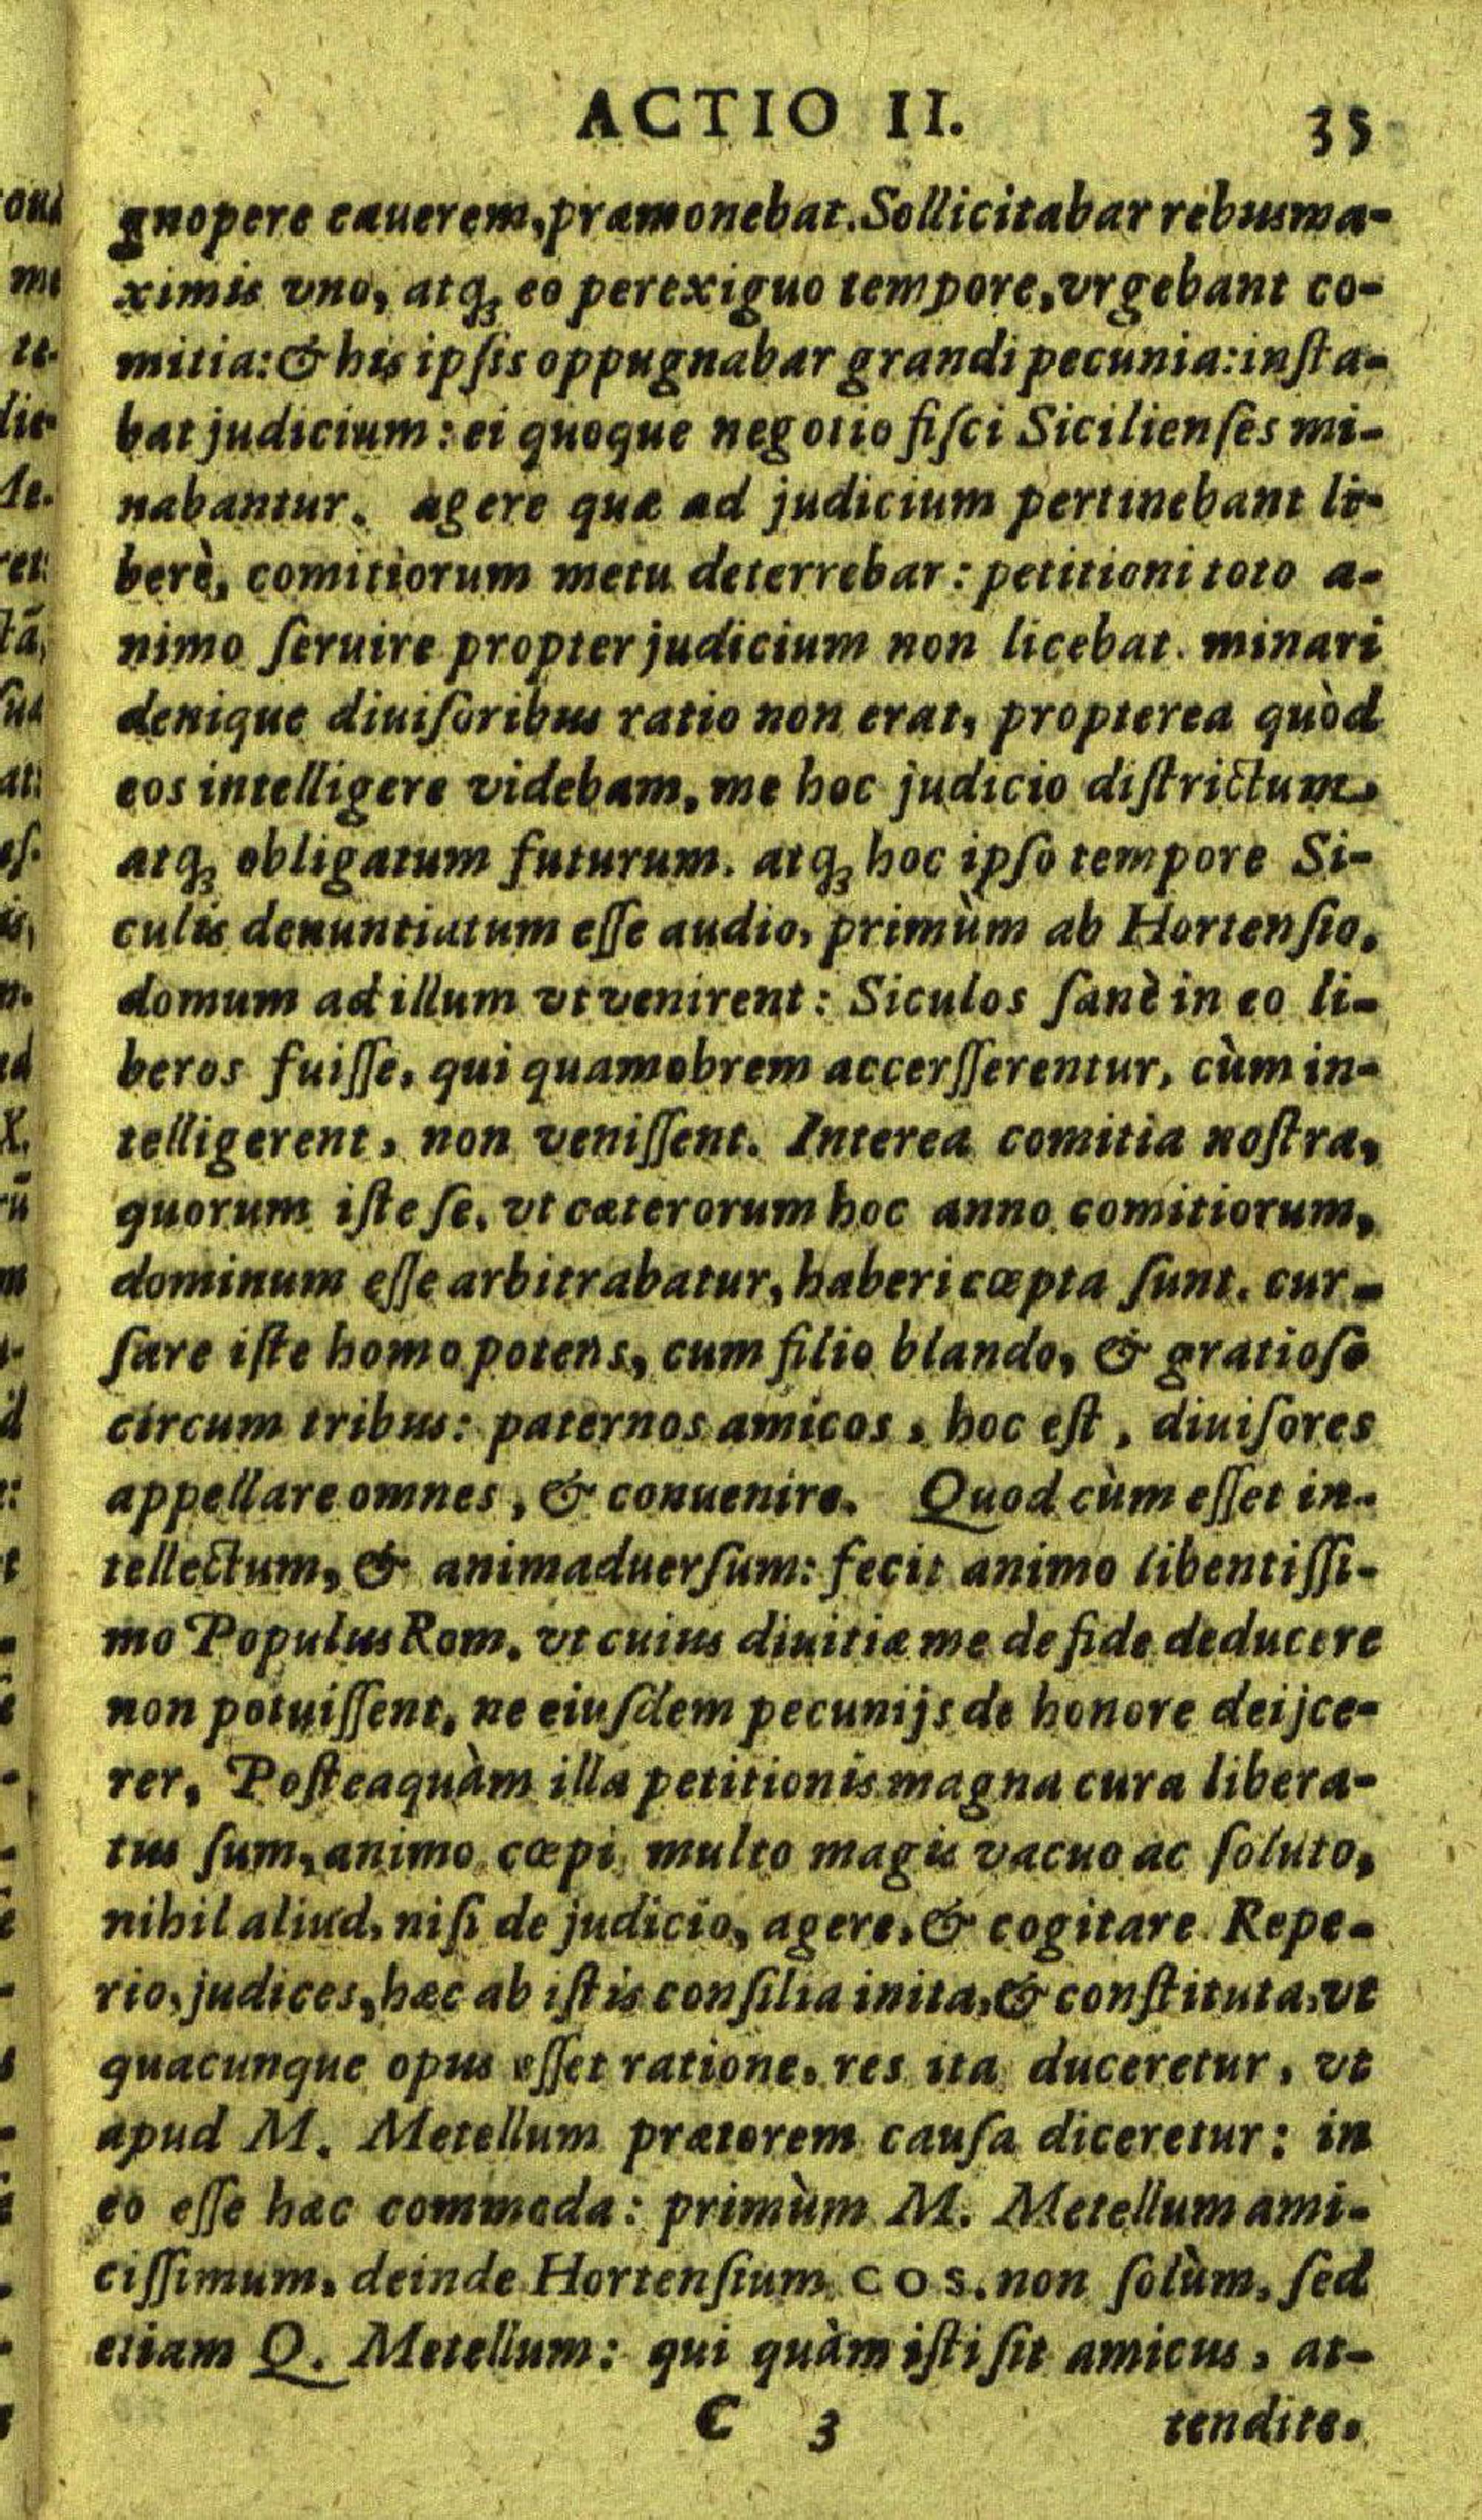 ACTIO II. 35
gnopere cauerem, præmonebat. Sollicitabar rebus ma-
ximis vno, atq; eo perexiguo tempore, vrgebant co-
mitia: & his ipſis oppugnabar grandi pecunia: inſta-
bat judicium: ei quoque negotio fiſci Sicilienſes mi-
nabantur. agere quæ ad judicium pertinebant li-
berè, comitiorum metu deterrebar: petitioni toto a-
nimo ſeruire propter judicium non licebat. minari
denique diuiſoribus ratio non erat, propterea quòd
eos intelligere videbam, me hoc judicio diſtrictum
atq; obligatum futurum. atq; hoc ipſo tempore Si-
culis denuntiatum eſſe audio, primùm ab Hortenſio,
domum ad illum vt venirent: Siculos ſanè in eo li-
beros fuiſſe, qui quamobrem accerſſerentur, cùm in-
telligerent, non veniſſent. Interea comitia noſtra,
quorum iſte ſe, vt cæterorum hoc anno comitiorum,
dominum eſſe arbitrabatur, haberi cœpta ſunt. cur-
ſare iſte homo potens, cum filio blando, & gratioſo
circum tribus: paternos amicos, hoc eſt, diuiſores
appellare omnes, & conuenire. Quod cùm eſſet in-
tellectum, & animaduerſum: fecit animo libentiſſi-
mo Populus Rom. vt cuius diuitiæ me de fide deducere
non potuiſſent, ne eiuſdem pecunijs de honore deijce-
rer, Poſteaquàm illa petitionis magna cura libera-
tus ſum, animo cœpi multo magis vacuo ac ſoluto,
nihil aliud, niſi de judicio, agere, & cogitare. Repe-
rio, judices, hæc ab iſtis conſilia inita, & conſtituta, vt
quacunque opus eſſet ratione, res ita duceretur, vt
apud M. Metellum prætorem cauſa diceretur: in
eo eſſe hæc commoda: primùm M. Metellum ami-
ciſſimum, deinde Hortenſium COS. non ſolùm, ſed
etiam Q. Metellum: qui quàm iſti ſit amicus, at-
C 3 tendite.